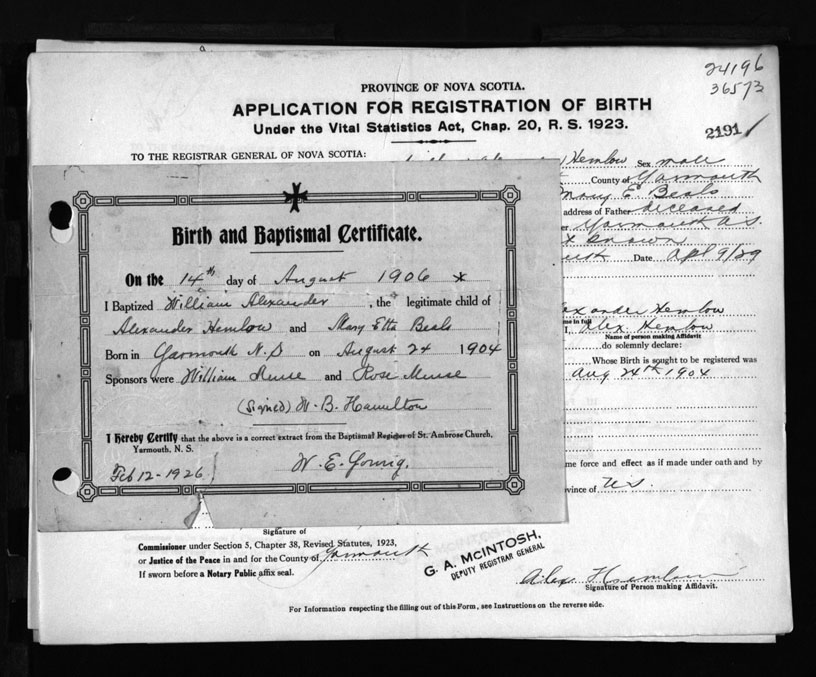 24196
36573
2191
PROVINCE OF NOVA SCOTIA.
APPLICATION FOR REGISTRATION OF BIRTH
Under the Vital Statistics Act, Chap. 20, R. S. 1923.
TO THE REGISTRAR GENERAL OF NOVA SCOTIA:
Hemlow Sex male
County of Yarmouth
Mary E Beals
address of Father deceased
Yarmouth N.S.
Date Apr 9/29
Birth and Baptismal Certificate.
On the 14th day of August 1906 *
I Baptized William Alexander, the legitimate child of
Alexander Hemlow and Mary Etta Beals
Born in Yarmouth N.S on August 24 1904
Sponsors were William and Rose
(Signed) W. B. Hamilton
I Hereby Certify that the above is a correct extract from the Baptismal Register of St. Ambrose Church,
Yarmouth, N. S.
Feb 12-1926
W. E. Young.
Alexander Hemlow
me in full
I, Alex Hemlow
Name of person making Affidavit
do solemnly declare:
Whose Birth is sought to be registered was
Aug 24th 1904
me force and effect as if made under oath and by
vince of N.S.
Signature of
Commissioner under Section 5, Chapter 38, Revised Statutes, 1923,
or Justice of the Peace in and for the County of Yarmouth
If sworn before a Notary Public affix seal.
G. A. McINTOSH,
DEPUTY REGISTRAR GENERAL
Alex Hemlow
Signature of Person making Affidavit.
For Information respecting the filling out of this Form, see Instructions on the reverse side.